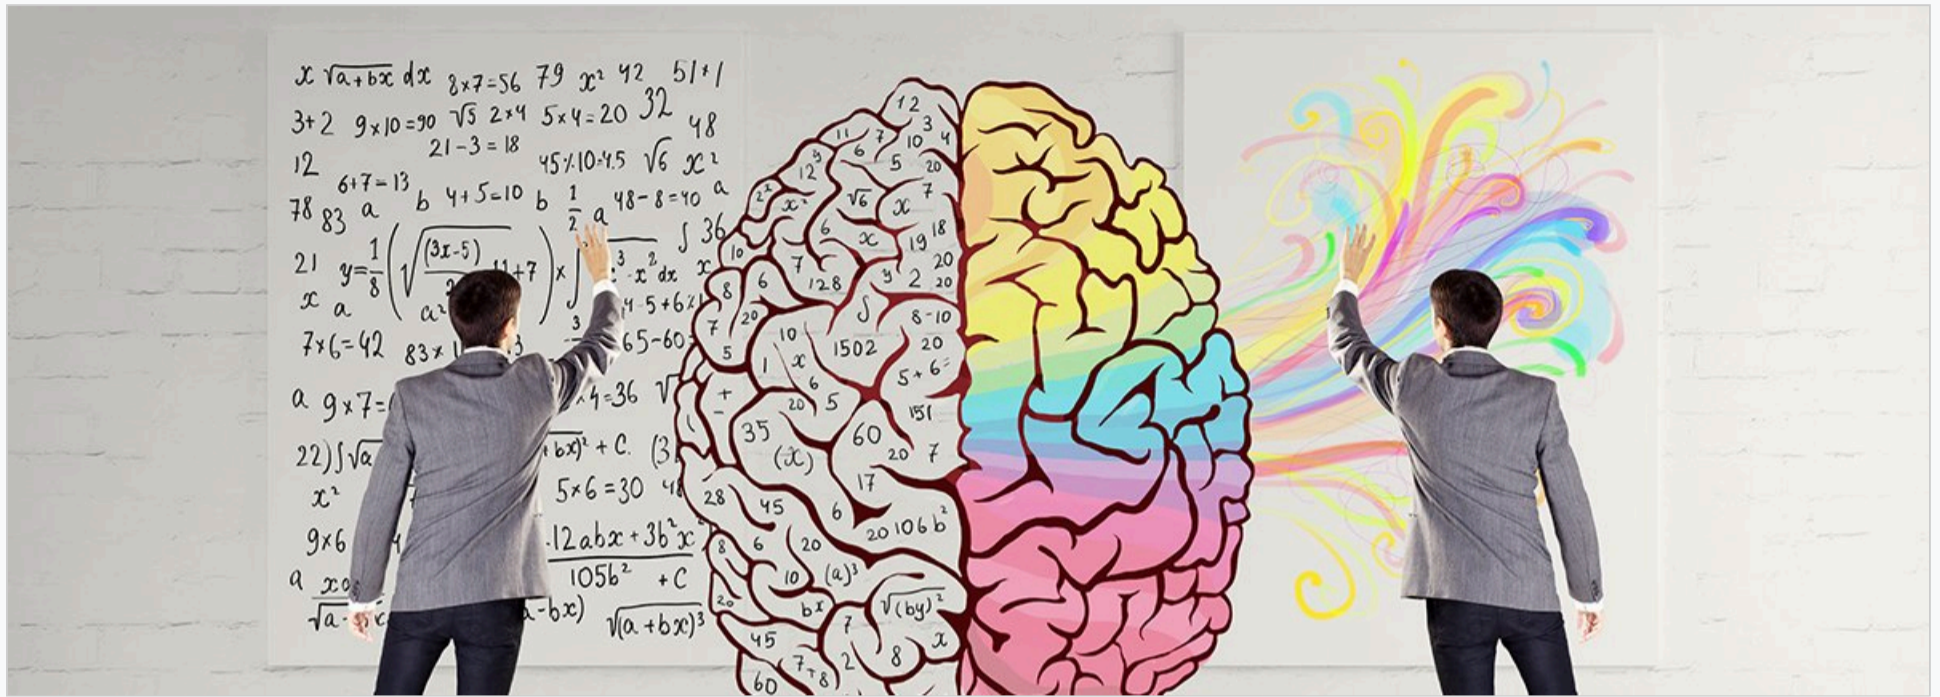 x √a+bx dx 8×7=56 79 x² 42 51+1
3+2 9×10=90 √5 2×4 5×4=20 32
48
21-3=18
12 45%10=4.5 √6 x²
6+7=13 b 4+5=10 b 1/2 48-8=40 a
78 83 a a
∫ 36
21 y=1/8 (√(3x-5) +7)× ∫ ³-x² dx x
x a a² 4-5+6
3
7×6=42 83× 65-60
a 9×7= ×4=36 √
22)∫√a bx)²+C. (3
x² 5×6=30 48
9×6 4 12abx+3b²x²
105b² +C
a x
√a- a-bx) √(a+bx)³
12
11 7 3
6 10 4
12 y 5 20
2² x² √6 x 7
6 x 19 18
10 7 20
8 6 128 y 2 20
7 20 ∫ 8-10
5 10 1502 20
1 x 6 5+6=
+ 20 5 151
-
35 60
(x) 20 7
28 17
45 6 20 106b²
8 6 20
10 (a)³
20 bx √(by)²
45 7 x
7+8 2 8
60